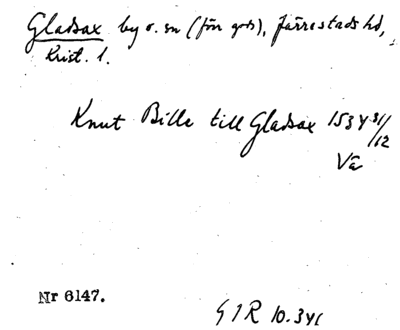 Gladsax by o. sn (förr gods), Järrestads hd,
Krist. l.
Knut Bille till Gladsax 1534 31/12
Vä
Nr 6147.
GIR 10.341